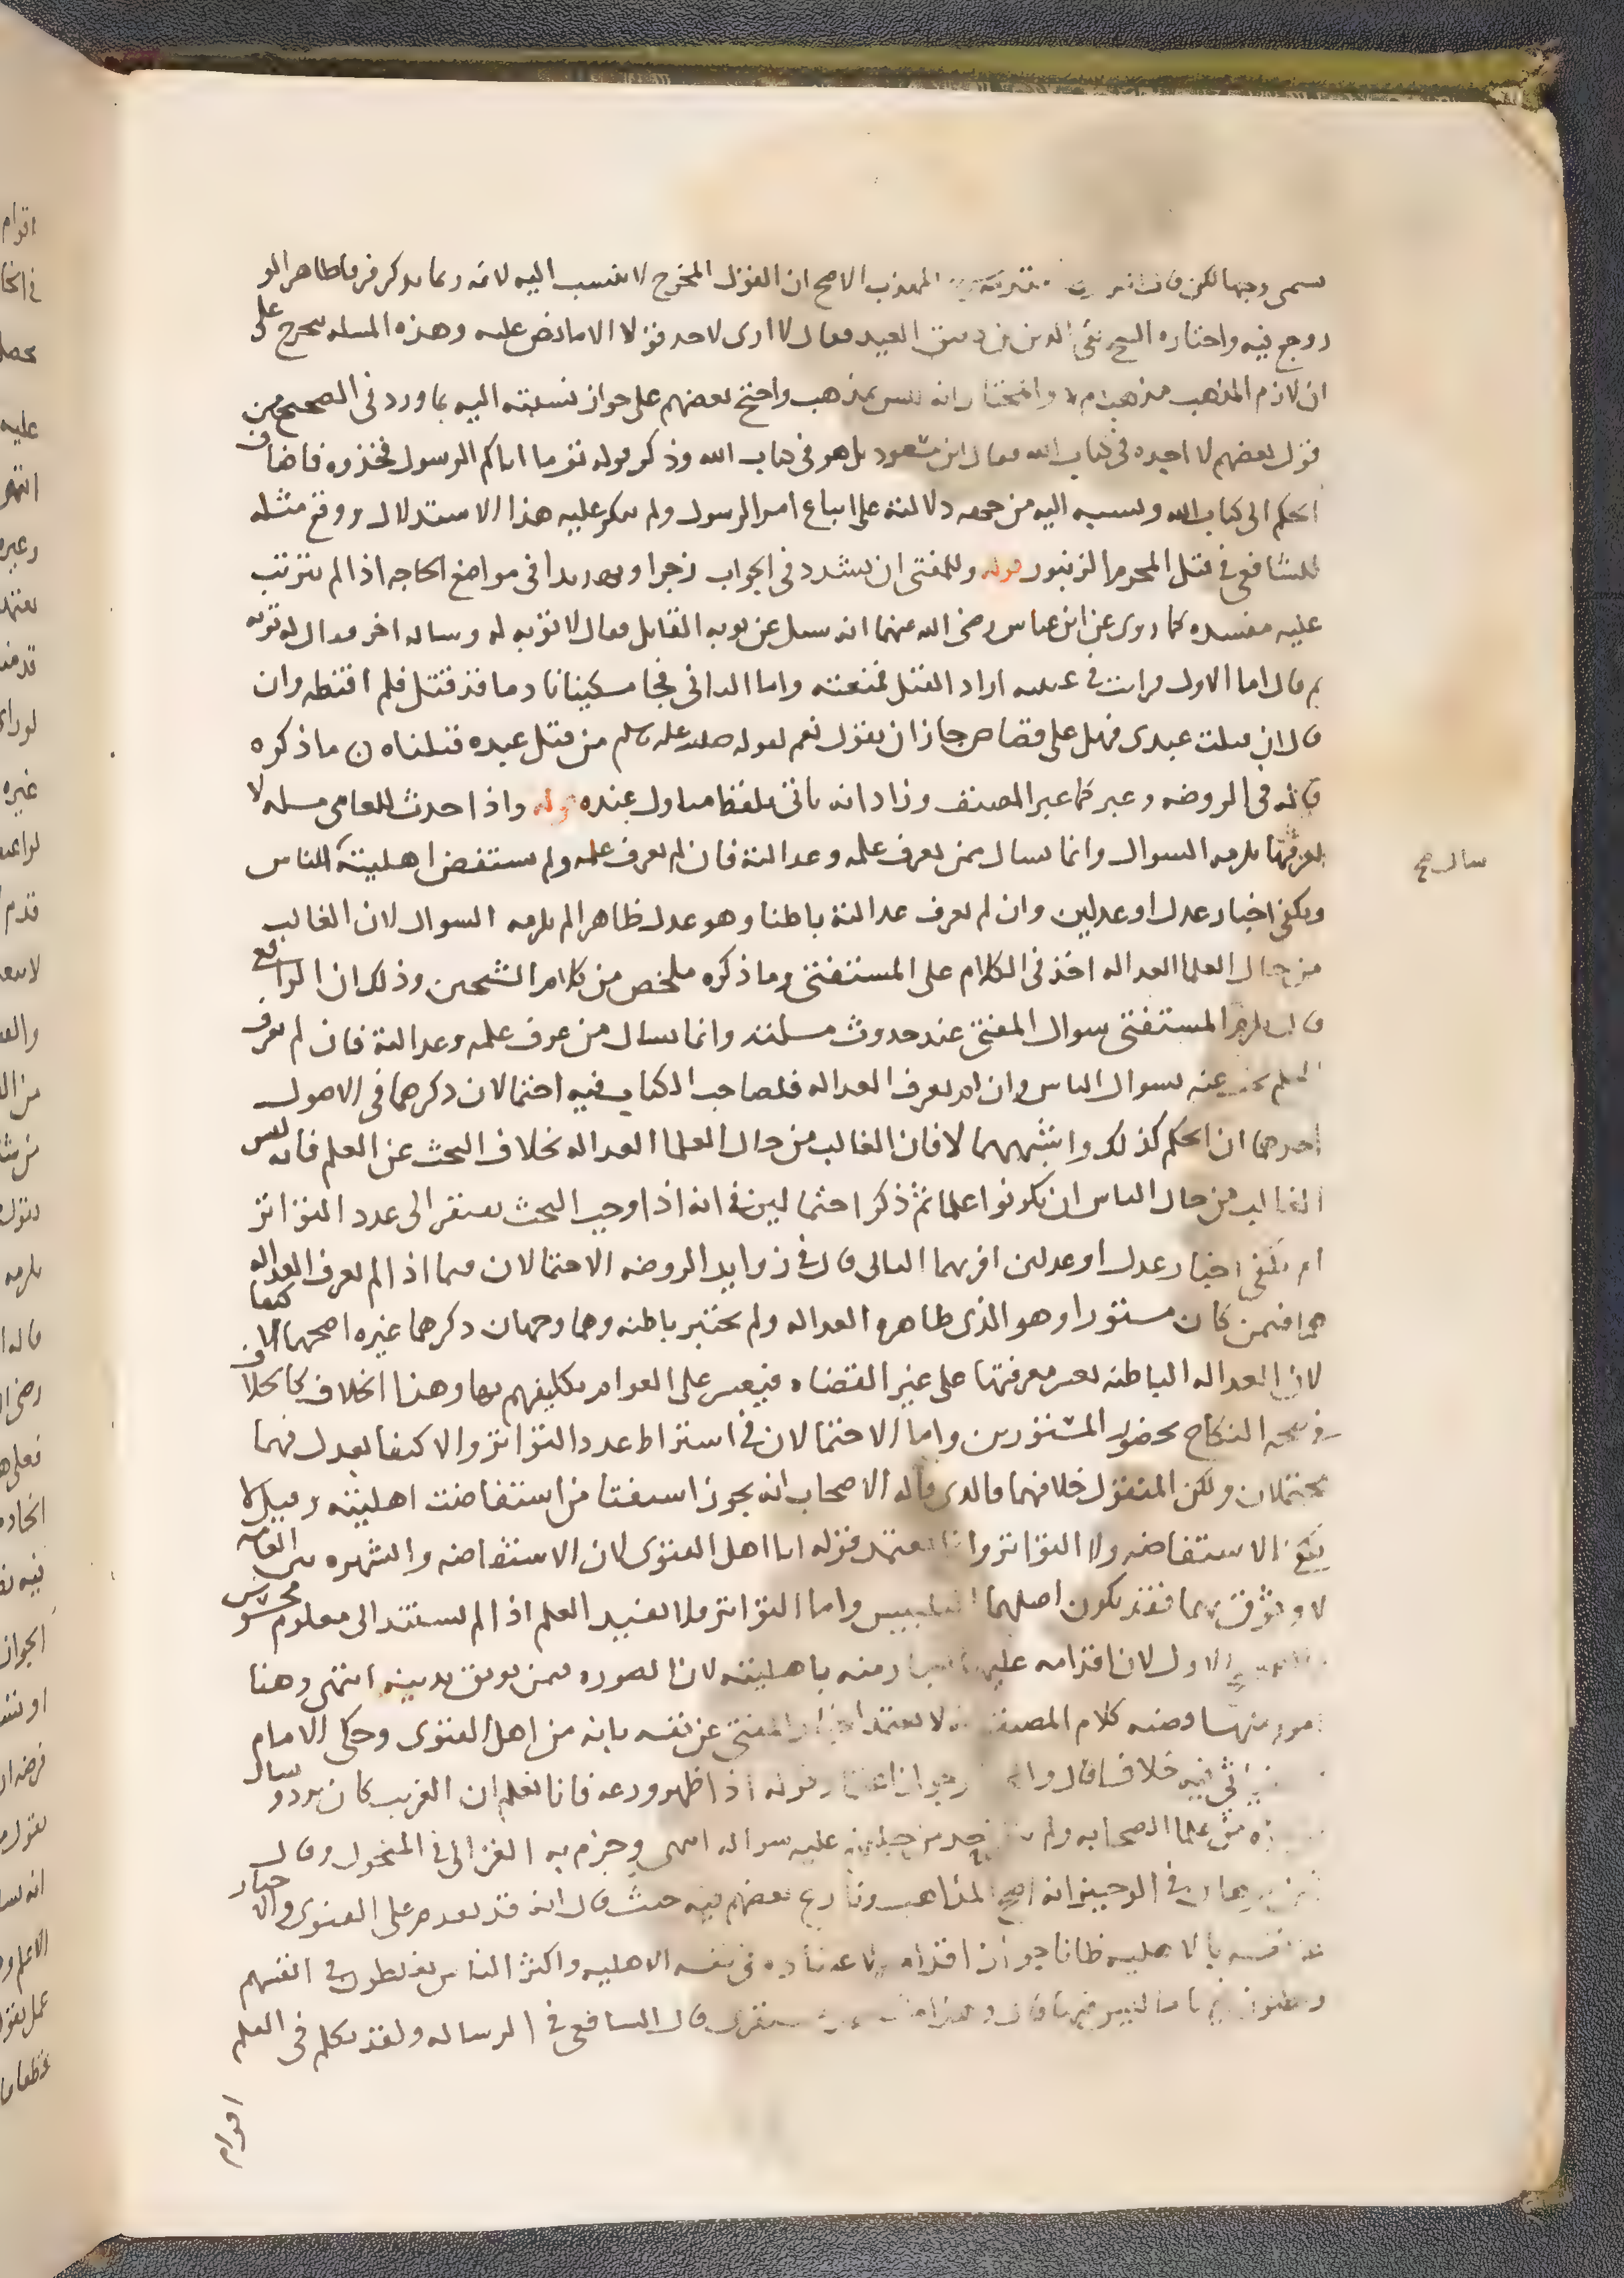 يسمى وجها لكن قال في المهذب الاصح ان القول المخرج لا ينسب اليه لانه ربما يذكر فرقا ظاهرا لو
روجع فيه واختاره الشيخ تقي الدين بن دقيق العيد فقال لا ارى لاحد قولا الا ما نص عليه وهذه المسله تتخرج على
ان لازم المذهب مذهب ام لا والمختار انه ليس بمذهب واحتج بعضهم على جواز نسبته اليه بما ورد في الصحيح من
قول بعضهم لا اجده في كتاب الله فقال ابن مسعود بل هو في كتاب الله وذكر قوله تع وما اتاكم الرسول فخذوه فاضاف
الحكم الى كتاب الله ونسبه اليه من جهه دلالته على اتباع امر الرسول ولم ينكر عليه هذا الاستدلال ووقع مثله
للشافعي في قتل المحرم الزنبور قوله وللمفتي ان يشدد في الجواب زجرا وتهديدا في مواضع الحاجه اذا لم يترتب
عليه مفسده كما روى عن ابن عباس رضى الله عنهما انه سيل عن توبه القاتل فقال لا توبه له وساله اخر فقال له توبه
ثم قال اما الاول فرايت في عينيه اراد القتل فمنعته واما الثاني فجا مسكينا نادما قد قتل فلم اقنطه وان
قال ان قتلت عبدى فهل على قصاص جاز ان يقول نعم لقوله صلى الله عليه وسلم من قتل عبده قتلناه ما ذكره
قاله في الروضه وعبر كما عبر المصنف وزاد انه ياتي بلفظ متاول عنده قوله واذا حدث للعامى مسله لا
يعرفها يلزمه السوال وانما يسال ممن يعرف علمه وعدالته فان لم يعرف علمه ولم تستفض اهليته الناس
سال صح
ويكفي اخبار عدل او عدلين وان لم يعرف عدالته باطنا وهو عدل ظاهرا لم يلزمه السوال لان الغالب
من حال العلما العداله اخذ في الكلام على المستفتى وما ذكره ملخص من كلام الشيخين وذلك ان الرافعي
قال يلزم المستفتى سوال المفتى عند حدوث مسلته وانما يسال من عرف علمه وعدالته فان لم يعرف
العلم بحث عنه بسوال الناس وان لم يعرف العداله فلصاحب الكتاب فيه احتمالان ذكرهما في الاصول
احدهما ان الحكم كذلك واشبههما لا فان الغالب من حال العلما العداله بخلاف البحث عن العلم فانه ليس
الغالب من حال الناس ان يكونوا علما ثم ذكر احتمالين في انه اذا وجب البحث يفتقر الى عدد التواتر
ام يكفى اخبار عدل او عدلين اقربهما الثانى قال في زوايد الروضه الاحتمالان فيما اذا لم يعرف العداله
هما فيمن كان مستورا وهو الذى ظاهره العداله ولم يختبر باطنه وهما وجهان ذكرهما غيره اصحهما الاكتفا
لان العداله الباطنه يعسر معرفتها على غير القضاه فيعسر على العوام تكليفهم بها وهذا الخلاف كالخلاف
في صحه النكاح بحضور المستورين واما الاحتمالان في اشتراط عدد التواتر والاكتفا بعدل فهما
محتملان ولكن المنقول خلافهما فالذى قاله الاصحاب انه يجوز استفتا من استفاضت اهليته وقيل لا
يكفى الاستفاضه ولا التواتر وانما يعتمد قوله انا اهل الفتوى لان الاستفاضه والشهره بين العامه
لا وثوق بهما فقد يكون اصلهما التلبيس واما التواتر فلا يفيد العلم اذا لم يستند الى معلوم محسوس
الاول لان اقدامه عليها اخبار منه باهليته لان الصوره فيمن يوثق بدينه انتهى وهنا
امور منها قضيه كلام المصنف انه لا يعتمد اخبار المفتى عن نفسه بانه من اهل الفتوى وحكى الامام
فيه خلافا قال والمختار جواز اعتماد قوله اذا ظهر ورعه فانا نعلم ان الغريب كان يرد وسال
علما الصحابه ولم عليه سواله انتهى وجزم به الغزالى في المنخول وقال
ابن برهان في الوجيز انه اصح المذاهب ونازع بعضهم فيه حيث قال انه قد يقدم على الفتوى والاخبار
عن نفسه بالاهليه ظانا جواز اقدامه لاعتقاده في نفسه الاهليه واكثر الناس يغلطون في انفسهم
ويظنون بها ما ليس فيها قال الشافعي في الرساله ولقد تكلم في العلم
اقوام